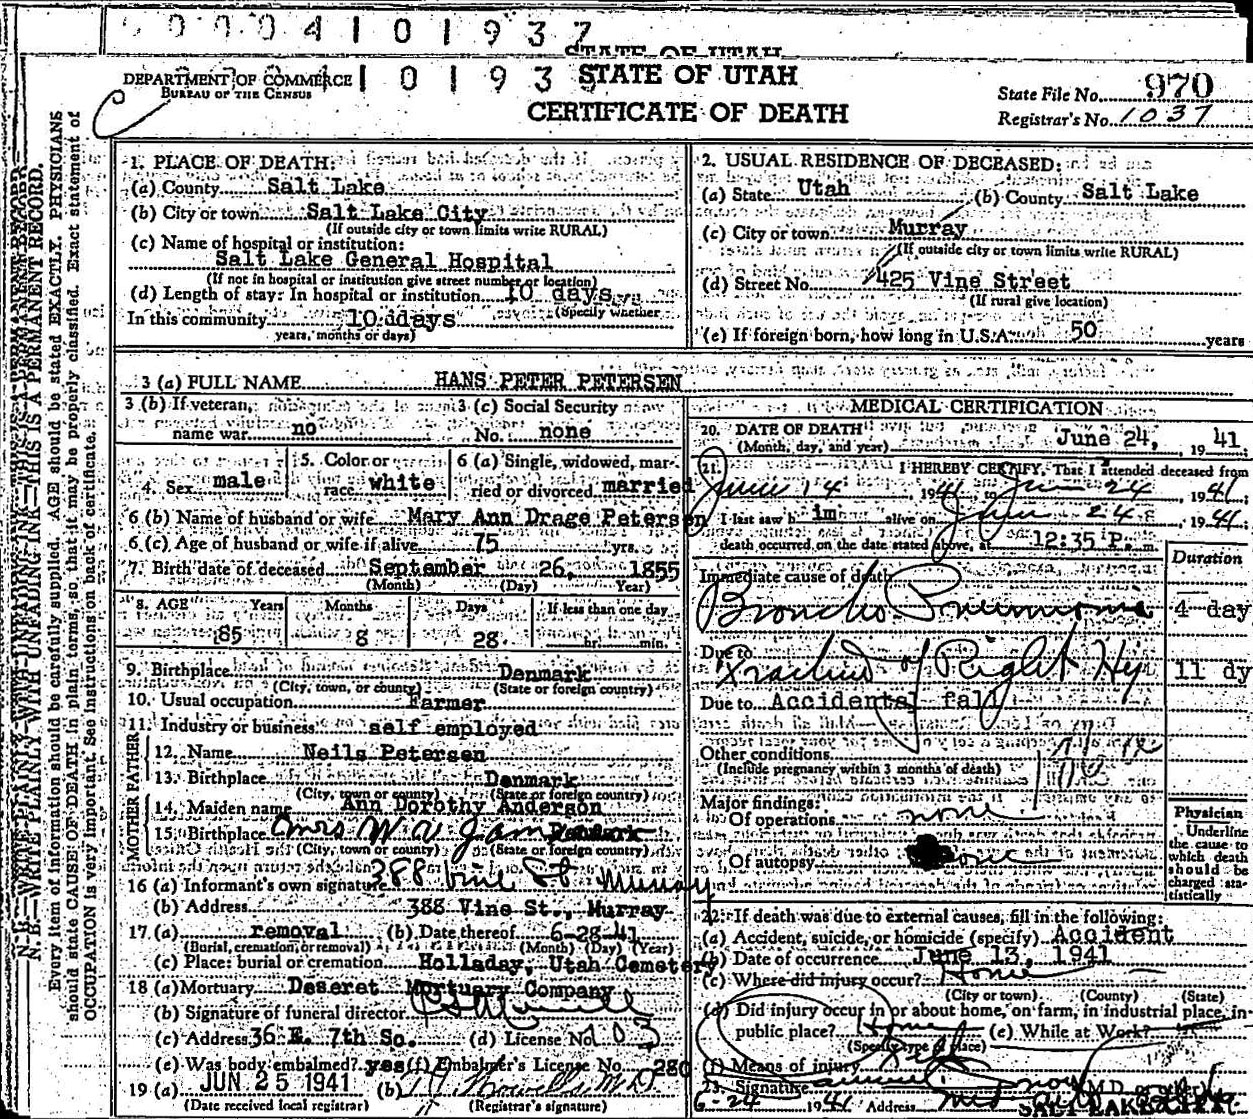 0004101937
STATE OF UTAH
DEPARTMENT OF COMMERCE
BUREAU OF THE CENSUS
STATE OF UTAH
CERTIFICATE OF DEATH
State File No. 970
Registrar's No. 1037
N. B.—WRITE PLAINLY WITH UNFADING INK—THIS IS A PERMANENT RECORD.
Every item of information should be carefully supplied. AGE should be stated EXACTLY. PHYSICIANS
should state CAUSE OF DEATH in plain terms, so that it may be properly classified. Exact statement of
OCCUPATION is very important. See instructions on back of certificate.
1. PLACE OF DEATH:
(a) County Salt Lake
(b) City or town Salt Lake City
(If outside city or town limits write RURAL)
(c) Name of hospital or institution:
Salt Lake General Hospital
(If not in hospital or institution give street number or location)
(d) Length of stay: In hospital or institution 10 days
(Specify whether
In this community 10 ddays
years, months or days)
2. USUAL RESIDENCE OF DECEASED:
(a) State Utah (b) County Salt Lake
(c) City or town Murray
(If outside city or town limits write RURAL)
(d) Street No. 425 Vine Street
(If rural give location)
(e) If foreign born, how long in U.S.A. 50 years
3 (a) FULL NAME HANS PETER PETERSEN
3 (b) If veteran, name war no
3 (c) Social Security No. none
4. Sex male
5. Color or race white
6 (a) Single, widowed, married or divorced married
6 (b) Name of husband or wife Mary Ann Drage Petersen
6 (c) Age of husband or wife if alive 75 yrs.
7. Birth date of deceased September 26, 1855
(Month) (Day) (Year)
8. AGE Years Months Days If less than one day
85 8 28 hr. min.
9. Birthplace Denmark
(City, town, or county) (State or foreign country)
10. Usual occupation Farmer
11. Industry or business self employed
FATHER
12. Name Neils Petersen
13. Birthplace Denmark
(City, town or county) (State or foreign country)
MOTHER
14. Maiden name Ann Dorothy Anderson
15. Birthplace Denmark
Mrs W. A.
(City, town or county) (State or foreign country)
16 (a) Informant's own signature 388 Vine St Murray
(b) Address 388 Vine St., Murray
17 (a) removal (b) Date thereof 6-28-41
(Burial, cremation, or removal) (Month) (Day) (Year)
(c) Place: burial or cremation Holladay, Utah Cemetery
18 (a) Mortuary Deseret Mortuary Company
(b) Signature of funeral director
(c) Address 36 E. 7th So. (d) License No. 103
(e) Was body embalmed? yes (f) Embalmer's License No. 280
19 (a) JUN 25 1941 (b) M.D.
(Date received local registrar) (Registrar's signature)
MEDICAL CERTIFICATION
20. DATE OF DEATH June 24, 1941
(Month, day, and year)
21. I HEREBY CERTIFY, That I attended deceased from
June 14, 1941 to June 24 1941
I last saw him alive on June 24, 1941
death occurred on the date stated above, at 12:35 P. m.
Duration
Immediate cause of death
Broncho Pneumonia 4 day
Due to Fracture of Right Hip 11 dy
Due to Accidental fall
Other conditions
(Include pregnancy within 3 months of death)
Major findings:
Of operations none
Of autopsy none
Physician
Underline
the cause to
which death
should be
charged sta-
tistically
22. If death was due to external causes, fill in the following:
(a) Accident, suicide, or homicide (specify) Accident
(b) Date of occurrence June 13, 1941
(c) Where did injury occur? Home
(City or town) (County) (State)
(d) Did injury occur in or about home, on farm, in industrial place, in
public place? Home (e) While at Work?
(Specify type of place)
(f) Means of injury
23. Signature M.D.
6-24 1941 Address